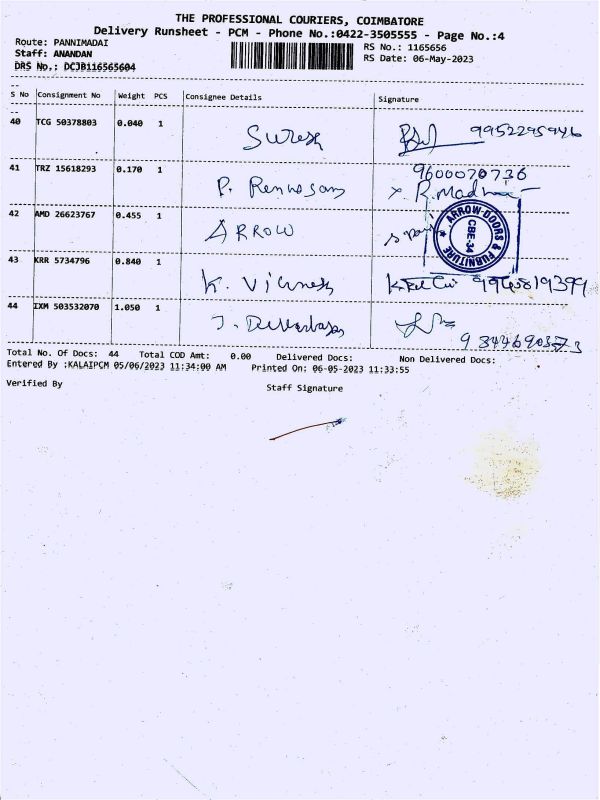 THE PROFESSIONAL COURIERS, COIMBATORE
Delivery Runsheet - PCM - Phone No.:0422-3505555 - Page No.:4
Route: PANNIMADAI
Staff: ANANDAN
DRS No.: DCJB116565604
RS No.: 1165656
RS Date: 06-May-2023
S No Consignment No Weight PCS Consignee Details Signature
40 TCG 50378803 0.040 1 Suresh 9952295946
41 TRZ 15618293 0.170 1 P. 9600070736
42 AMD 26623767 0.455 1 ARROW
ARROW DOORS & FURNITURE
CBE-34
43 KRR 5734796 0.840 1 K. Vignesh
44 IXM 503532070 1.050 1 J.
Total No. Of Docs: 44 Total COD Amt: 0.00 Delivered Docs: Non Delivered Docs:
Entered By :KALAIPCM 05/06/2023 11:34:00 AM Printed On: 06-05-2023 11:33:55
Verified By Staff Signature